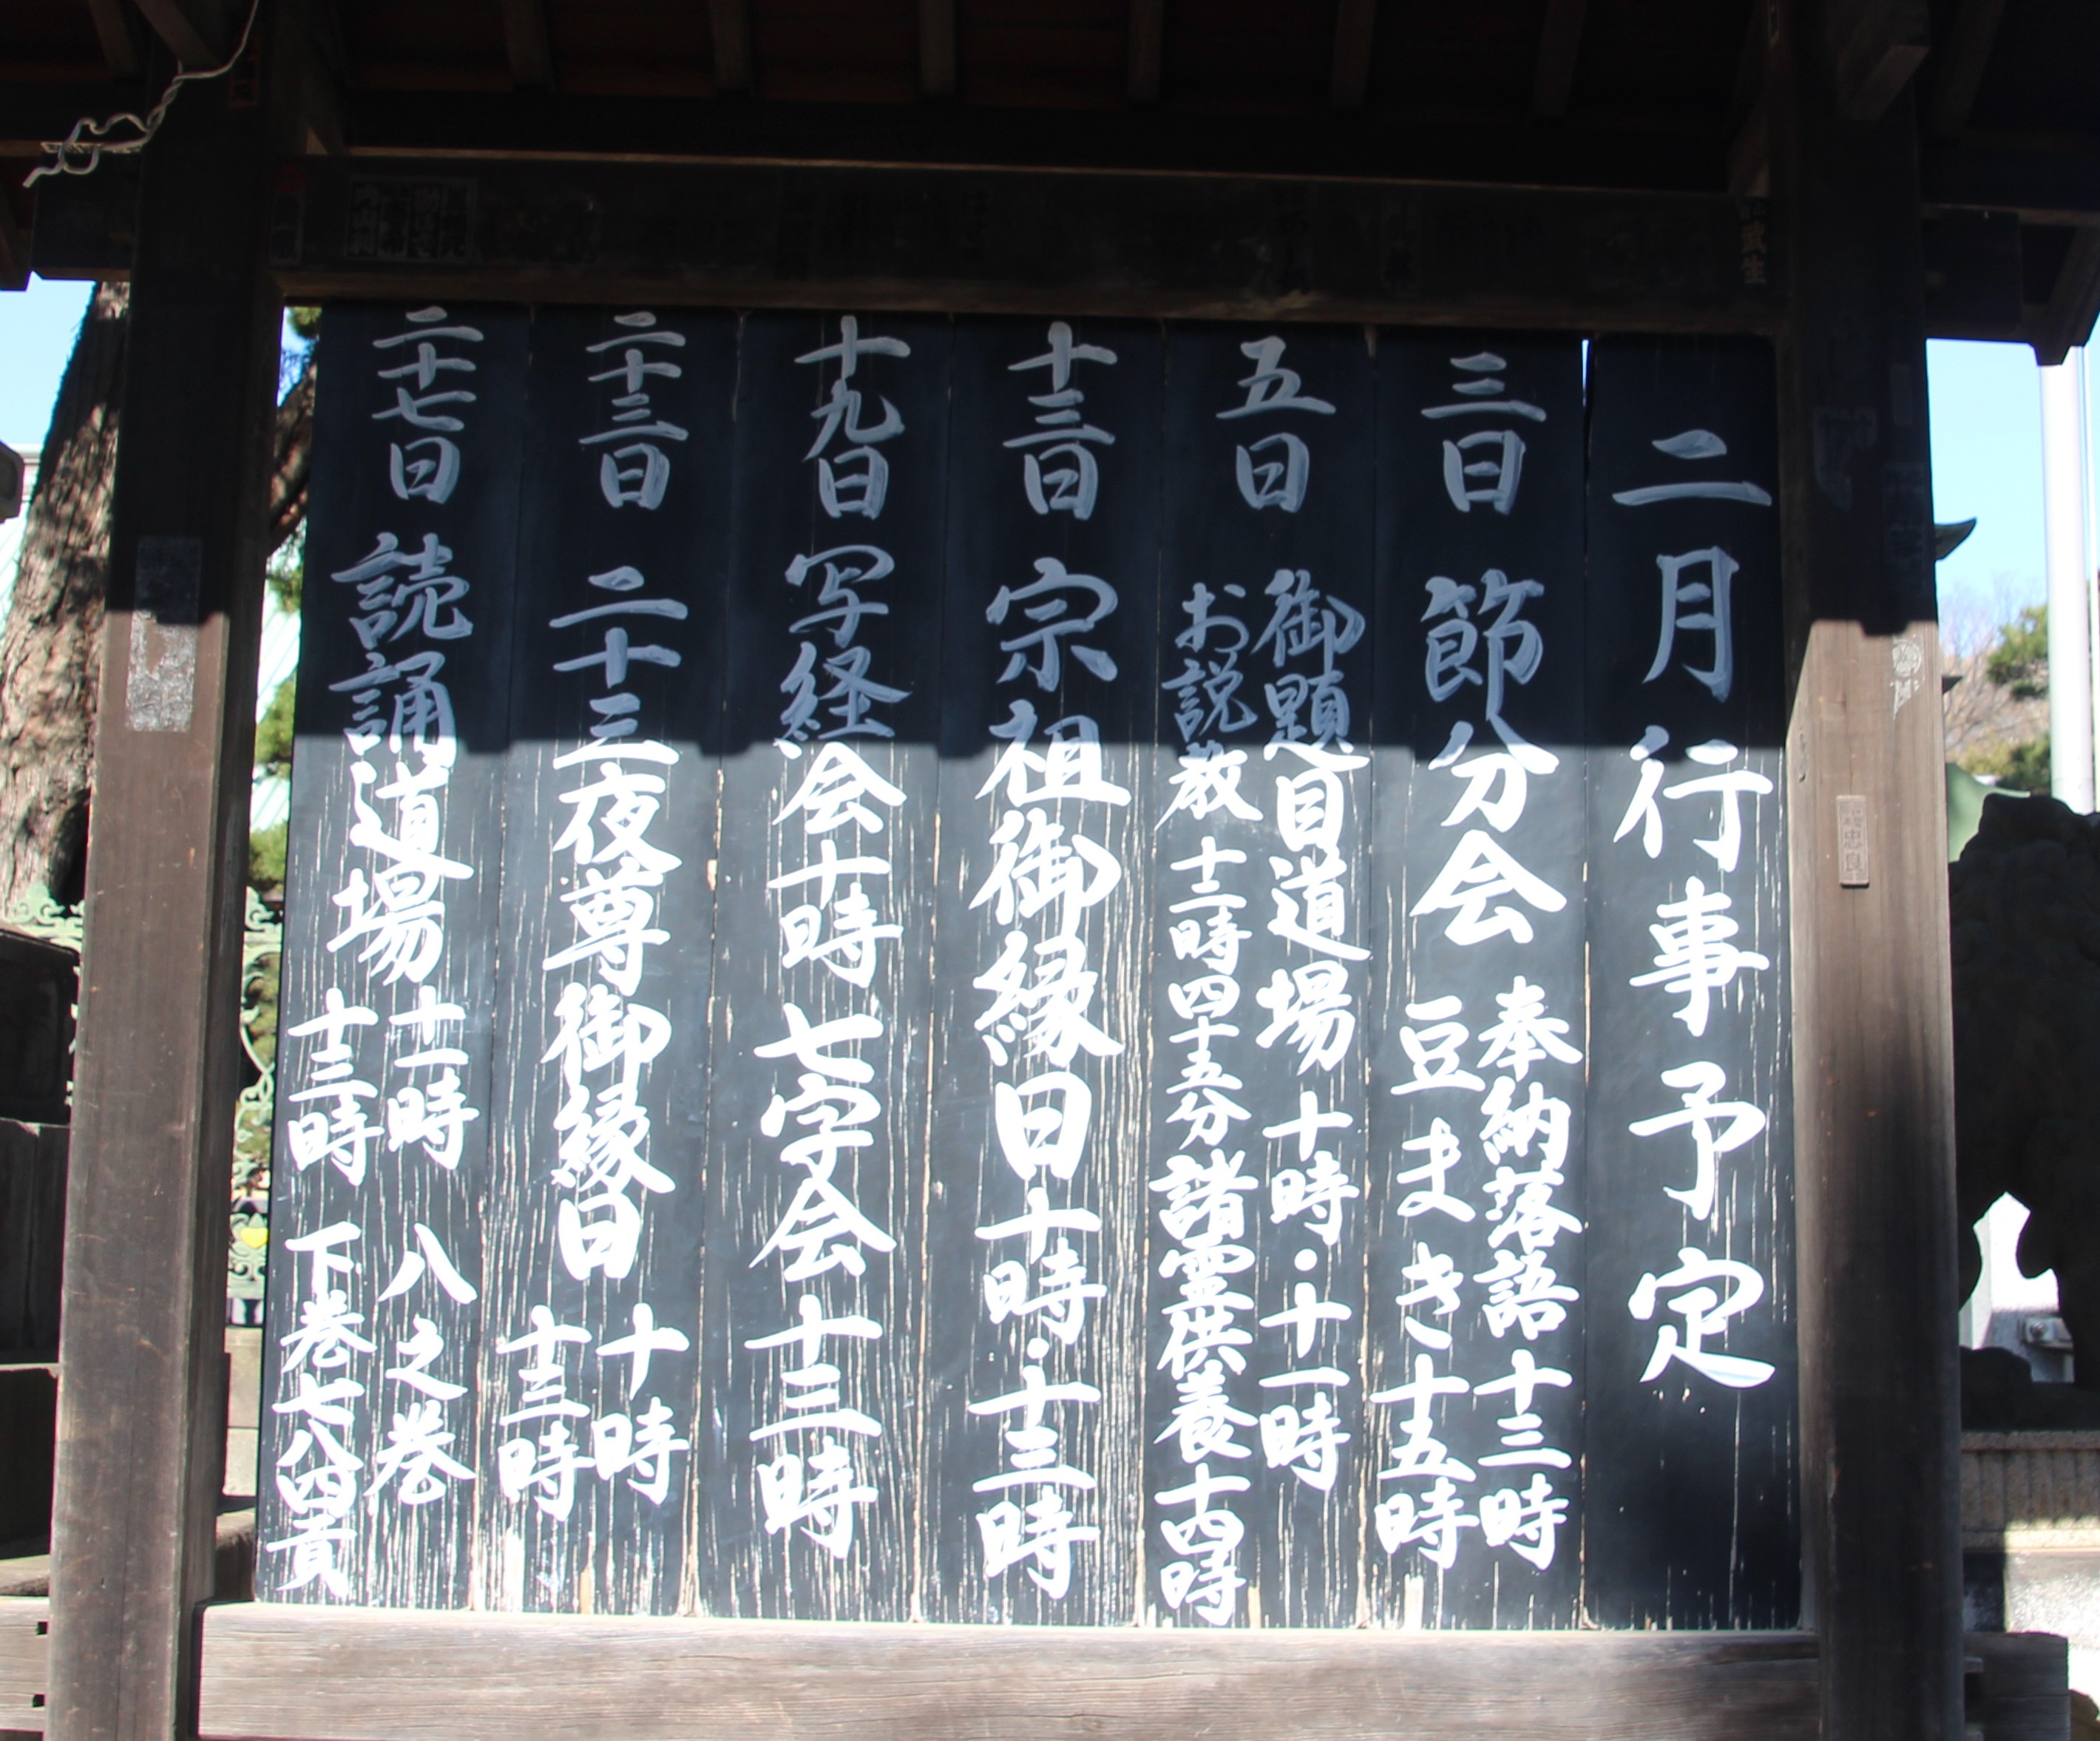 二月行事予定
三日 節分会
奉納落語 十三時
豆まき 十五時
五日
御題目道場 十時・十一時
お説教 十三時四十五分 諸霊供養 十四時
十三日 宗祖御縁日 十時・十三時
十九日 写経会 十時 七字会 十三時
二十三日 二十三夜尊御縁日
十時
十三時
二十七日 読誦道場
十一時 八之巻
十三時 下巻七八四頁